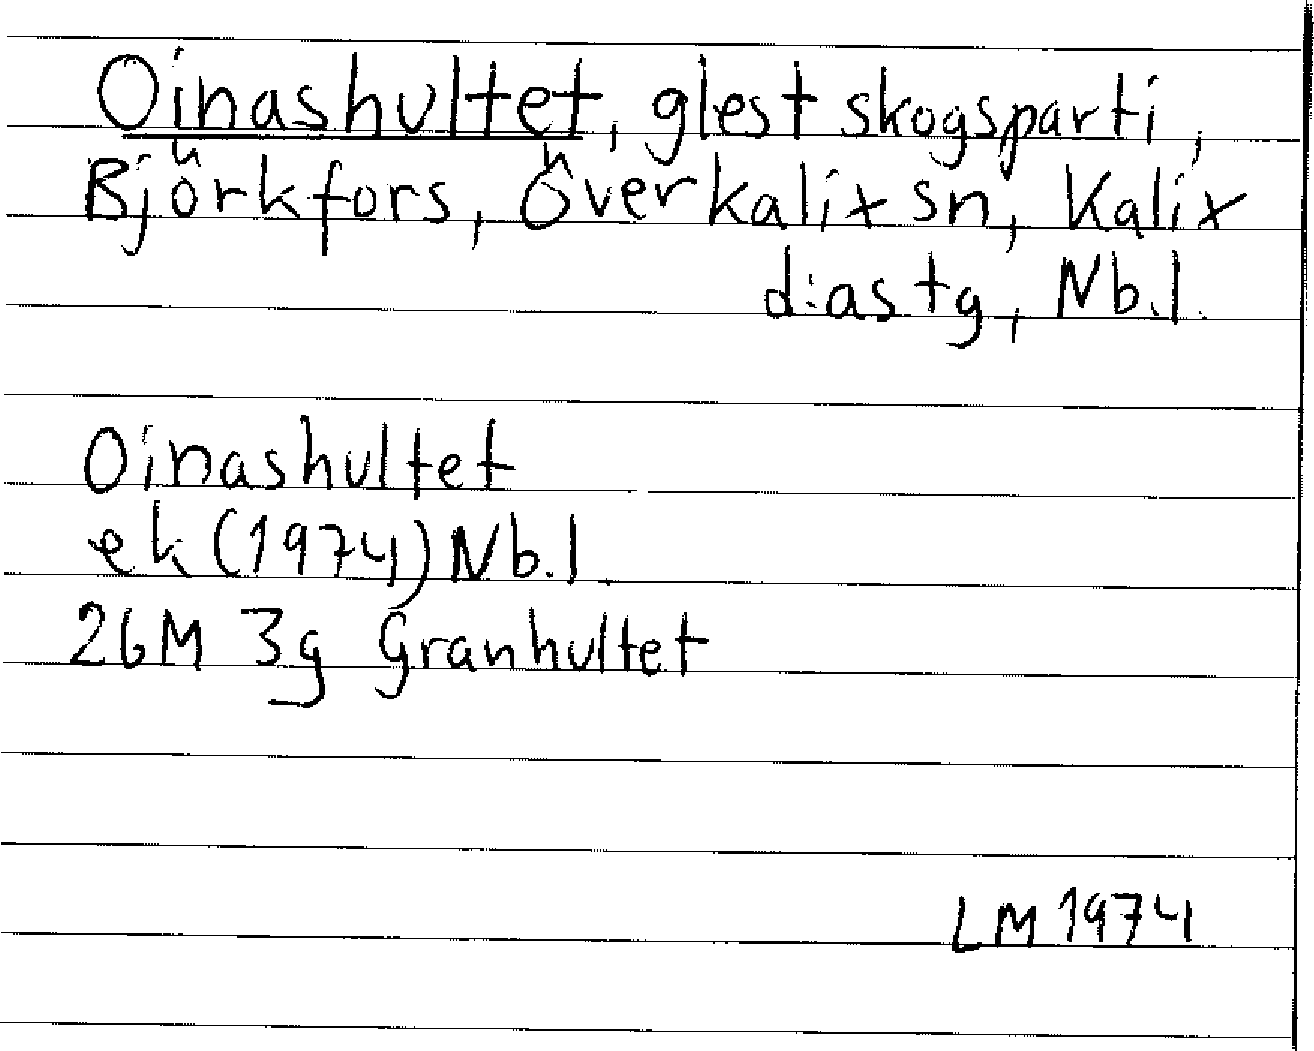 Oinashultet, glest skogsparti,
Björkfors, Överkalix sn, Kalix
d:a stg, Nb.l.
Oinashultet
ek (1974) Nb.l
26M 3g Granhultet
LM 1974